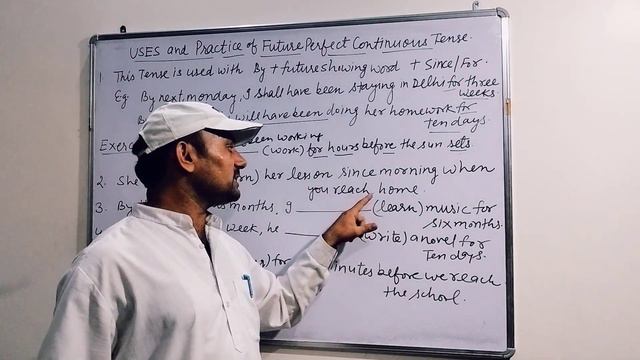 USES and Practice of Future Perfect Continuous Tense.
1. This Tense is used with By + future showing word + Since/For.
Eg: By next monday, I shall have been staying in Delhi for three
weeks
will have been doing her homework for
ten days.
been working
Exerc
(work) for hours before the sun sets.
2. She her lesson since morning when
you reach home.
3. months, I ______ (learn) music for
six months.
week, he ______ (write) a novel for
Ten days.
for minutes before we reach
the school.